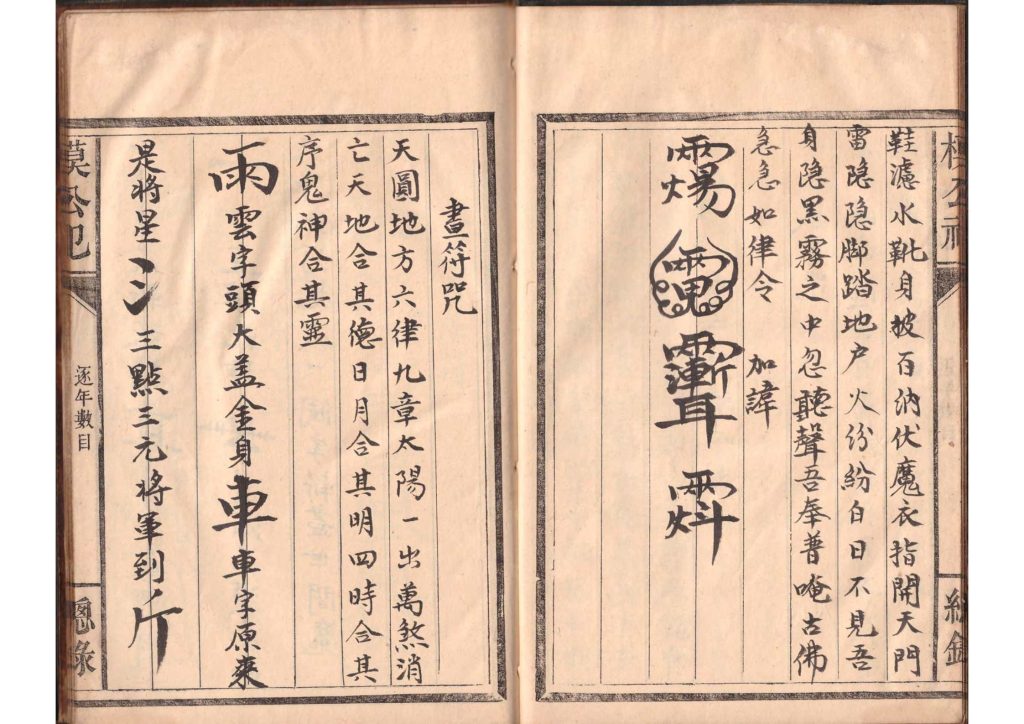 鞋濾水靴身披百納伏魔衣指開天門
雷隐隐脚踏地户火纷紛白日不見吾
身隐黑霧之中忽聽聲吾奉普唵古佛
急急如律令 加諱
晝符咒
天圓地方六律九章太陽一出萬煞消
亡天地合其德日月合其明四時合其
序鬼神合其靈
雨雲字頭大盖金身車車字原來
是将星冫三點三元将軍到斤
逐年數目
總錄